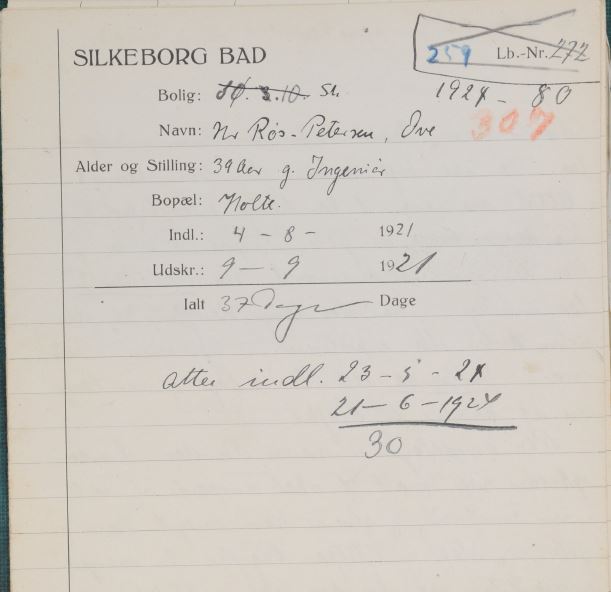 259 Lb.-Nr. 272
SILKEBORG BAD
1924 - 80
Bolig: St.
307
Navn: Hr Røs-Petersen, Ove
Alder og Stilling: 39 Aar g. Ingeniør
Bopæl: Holte.
Indl.: 4 - 8 - 1921
Udskr.: 9 - 9 1921
Ialt 37 Dage Dage
atter indl. 23 - 5 - 24
21 - 6 - 1924
30